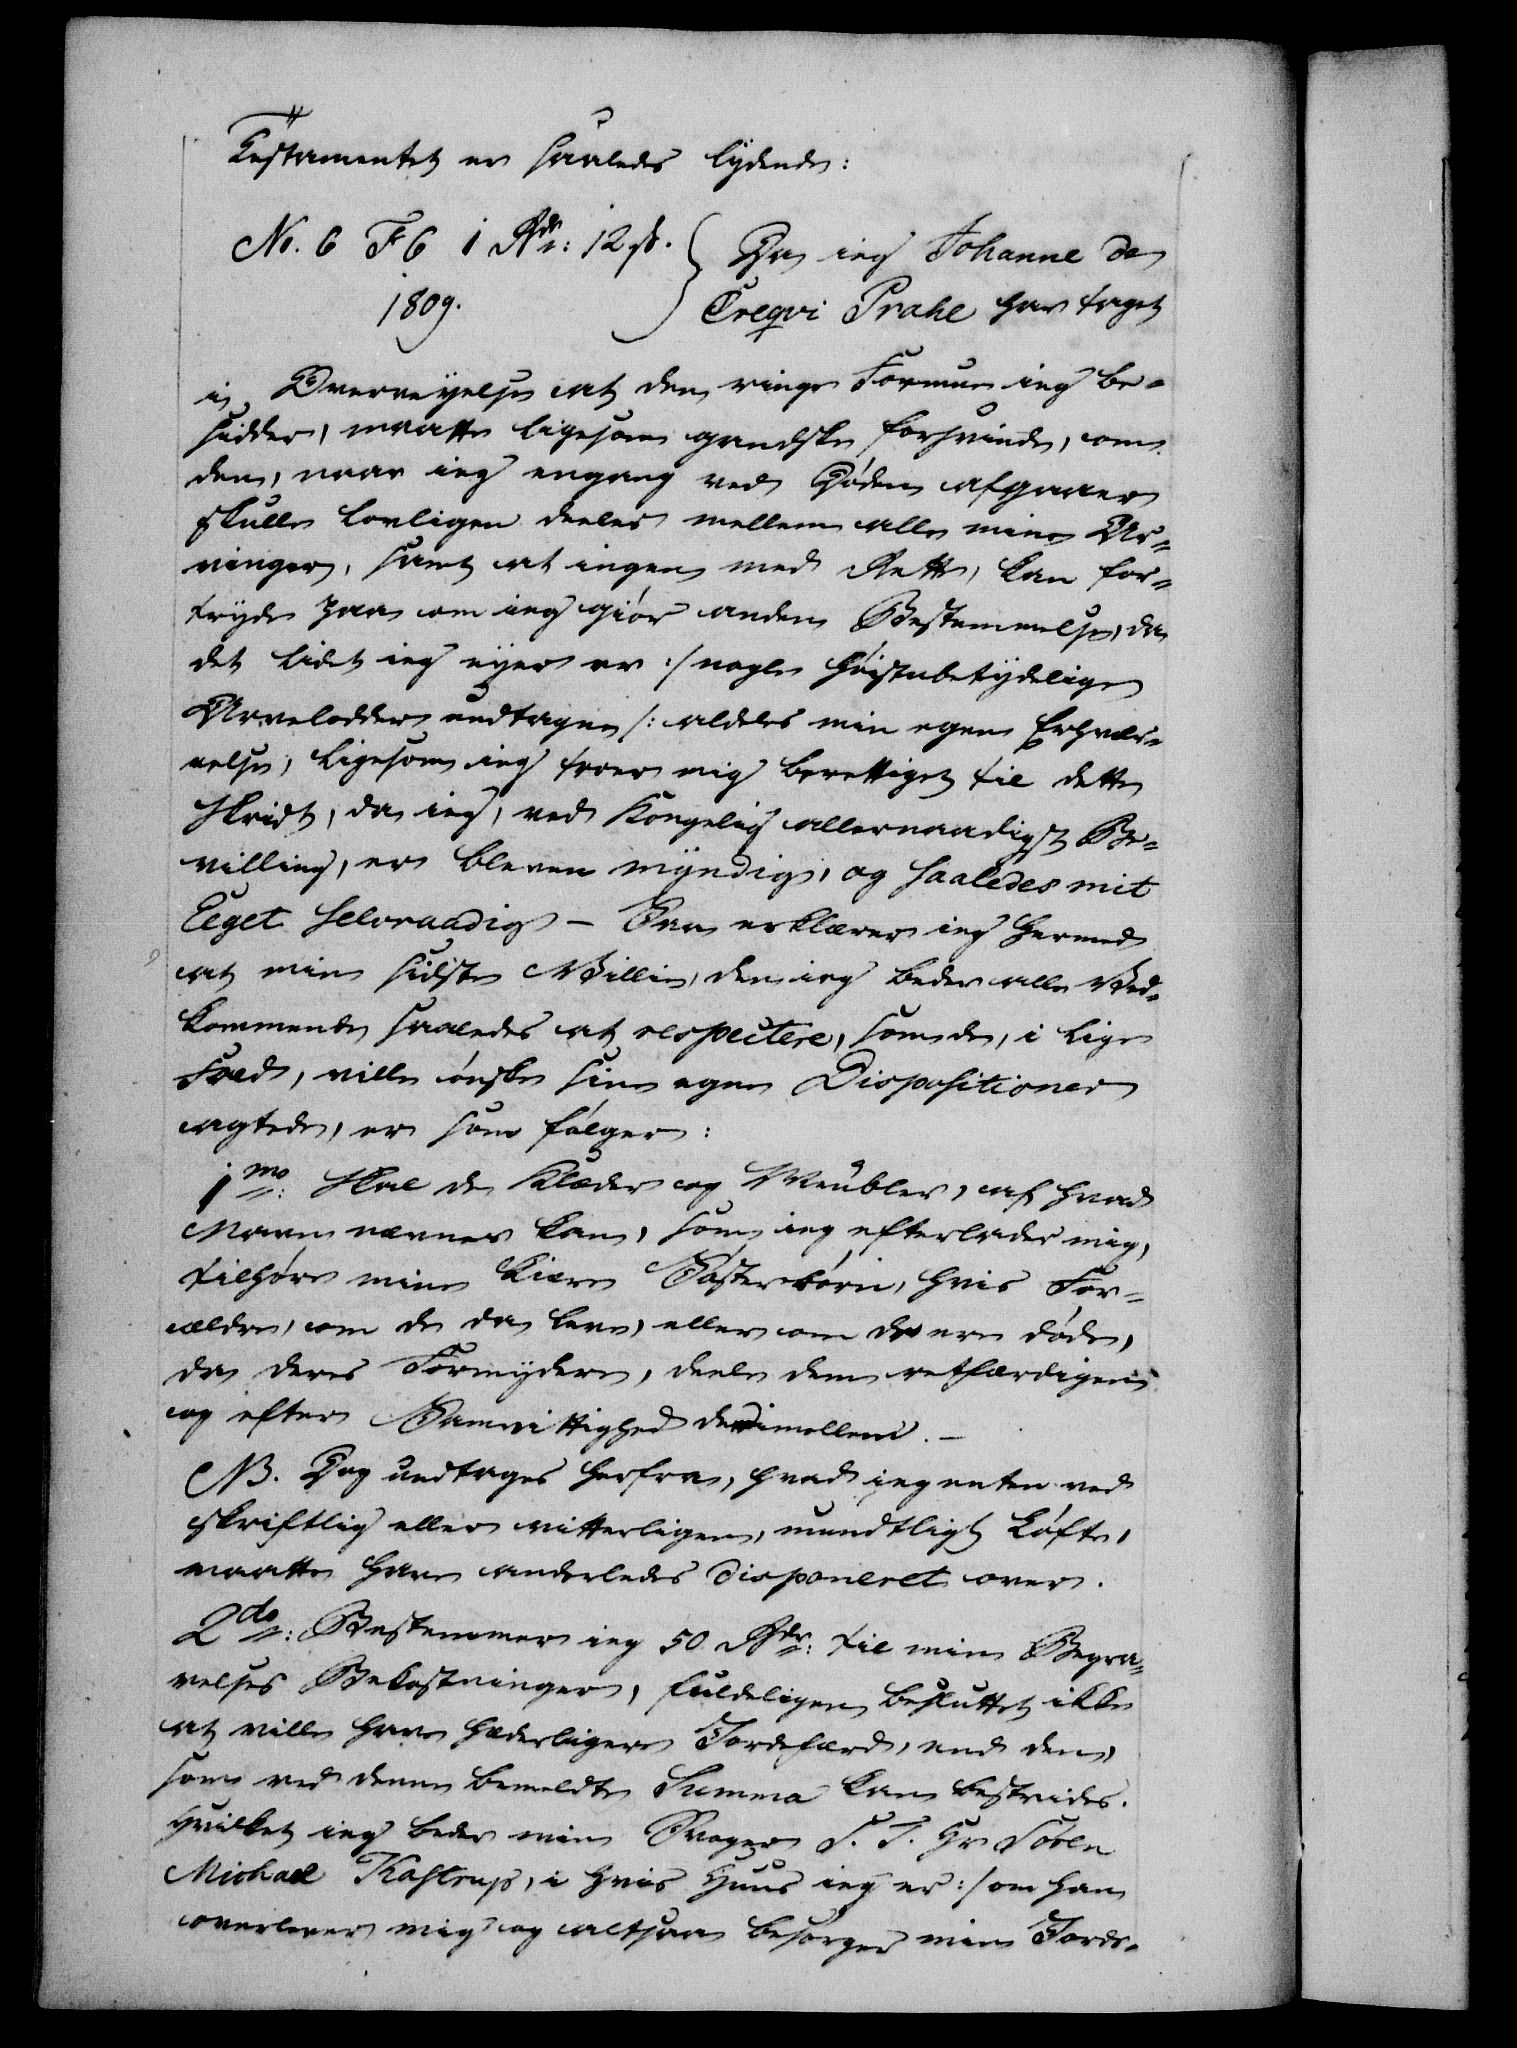 Testamentet er saaledes lydende:
No. 6 F 6 1 Rdr: 12 ß. Da ieg Johanne de
1809. Creqvi Prahe har taget
i Overveyelse at den ringe Formue ieg be-
sidder, maatte ligesom gandske forsvinde, om
den, naar ieg engang ved Døden afgaaer
skulle lovligen deeles mellem alle mine Ar-
vinger, samt at ingen med Rette, kan for-
tryde paa om ieg giör anden Bestemmelse, da
det Lidet ieg eyer er :/ nogle høistubetydelige
Arvelodder undtagen /: aldeles min egen Erhver-
velse, ligesom ieg troer mig berettiget til dette
Skridt, da ieg, ved Kongelig allernaadigst Be-
villing, er bleven myndig, og saaledes mit
Eeget selvraadig — Saa erklærer ieg hermed
at min sidste Villie, den ieg beder alle Ved-
kommende saaledes at respectere, som de, i lige
Fald, ville ønske sine egne Dispositioner
agtede, er som følger:
1mo: Skal de Klæder og Meubler, af hvad
Navn nævnes kan, som ieg efterlader mig,
tilhøre mine kiere Søsterbørn, hvis For-
ældre, om de da leve, eller om de ere døde,
da deres Formyndere, deele dem retfærdigen
og efter Samvittighed derimellem. —
NB. Dog undtages herfra, hvad ieg enten ved
skriftlig eller vitterligen, mundtligt Løfte,
maatte have anderledes disponeret over.
2do: Bestemmer ieg 50 Rdr: til min Begra-
velses Bekostninger, fuldeligen besluttet ikke
at ville have hæderligere Jordefærd, end den,
som ved denne bemeldte Summa kan bestrides.
Hvilket ieg beder min Svoger S. T. Hr Sören
Michael Kastrup, i hvis Huus ieg er :/ om han
overlever mig og altsaa besörger min Jorde-